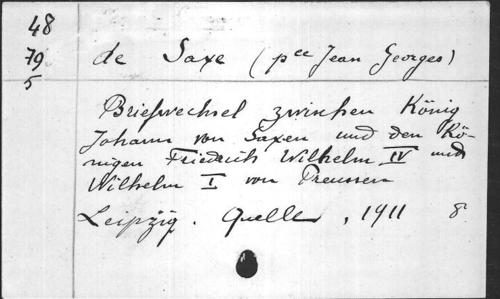 48
79
5
de Saxe (pce Jean Georges)
Briefwechsel zwischen König
Johann von Saxen und den Kö-
nigen Friedrich Wilhelm IV und
Wilhelm I von Preussen
Leipzig. Quelle, 1911 8